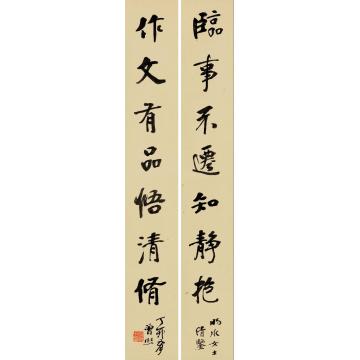 臨事不遷知靜抱
明水女士
清鑒
作文有品悟清脩
丁卯春
曾熙